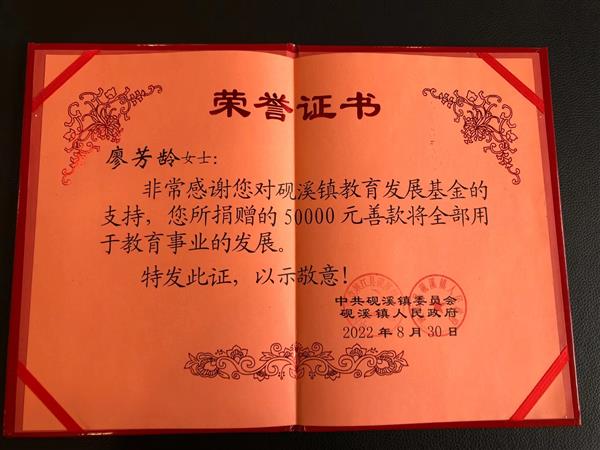 荣誉证书
廖芳龄女士：
非常感谢您对砚溪镇教育发展基金的
支持，您所捐赠的50000元善款将全部用
于教育事业的发展。
特发此证，以示敬意！
中共砚溪镇委员会
砚溪镇人民政府
2022年8月30日